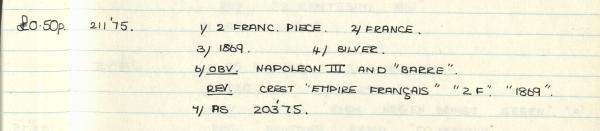 £0.50p. 211'75. 1/ 2 FRANC. PIECE. 2/ FRANCE.
3/ 1869. 4/ SILVER.
6/ OBV. NAPOLEON III AND "BARRE".
REV. CREST "EMPIRE FRANÇAIS" "2 F" "1869"
7/ AS 203'75.